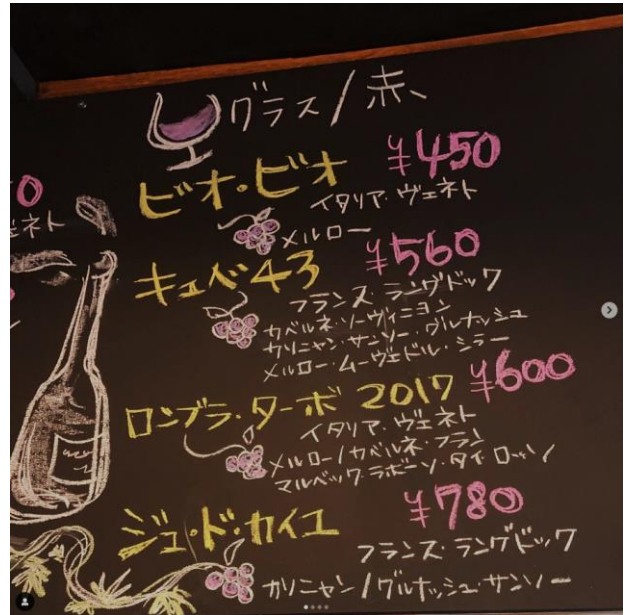 グラス/赤、
ビオ・ビオ ¥450
イタリア・ヴェネト
メルロー
キュベ43 ¥560
フランス・ラングドック
カベルネ・ソーヴィニヨン
カリニャン・サンソー・グルナッシュ
メルロー・ムーヴェドル・シラー
ロンブラ・ターボ 2017 ¥600
イタリア・ヴェネト
メルロー/カベルネ・フラン
マルベック・ラボーソ・タイ・ロッソ
ジュ・ド・カイユ ¥780
フランス・ラングドック
カリニャン/グルナッシュ・サンソー
0
ネト